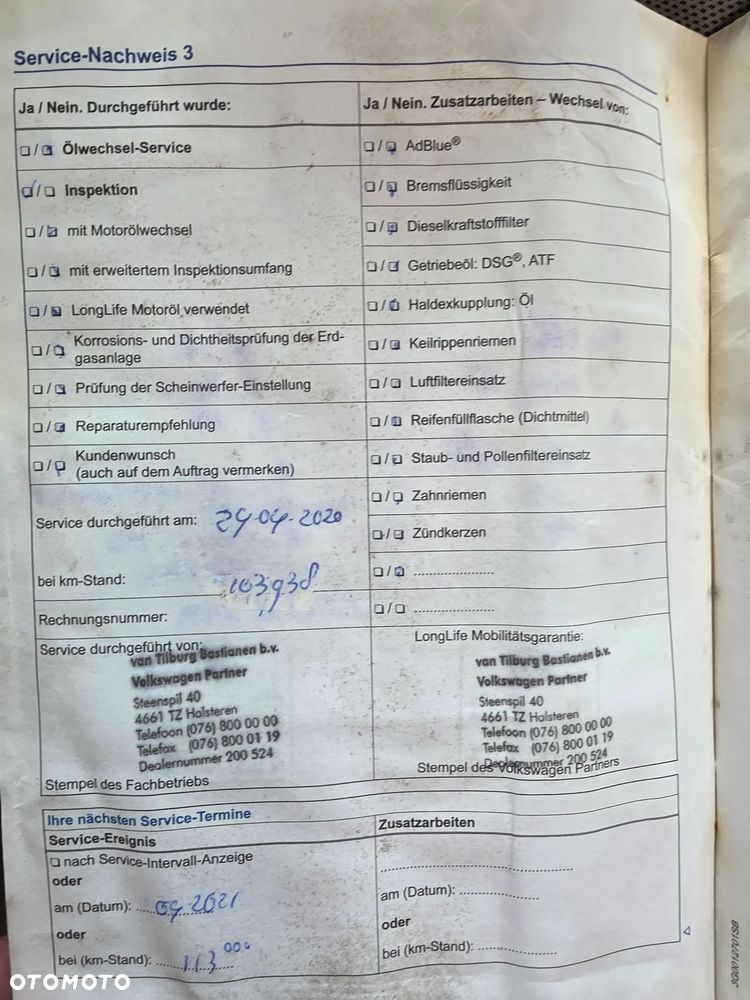 Service-Nachweis 3
Ja / Nein. Durchgeführt wurde:
❏ / ❏ Ölwechsel-Service
❏ / ❏ Inspektion
❏ / ❏ mit Motorölwechsel
❏ / ❏ mit erweitertem Inspektionsumfang
❏ / ❏ LongLife Motoröl verwendet
❏ / ❏ Korrosions- und Dichtheitsprüfung der Erd-
gasanlage
❏ / ❏ Prüfung der Scheinwerfer-Einstellung
❏ / ❏ Reparaturempfehlung
❏ / ❏ Kundenwunsch
(auch auf dem Auftrag vermerken)
Service durchgeführt am: 24-04-2020
bei km-Stand: 103938
Rechnungsnummer:
Service durchgeführt von:
van Tilburg Bastianen b.v.
Volkswagen Partner
Steenspil 40
4661 TZ Halsteren
Telefoon (076) 800 00 00
Telefax (076) 800 01 19
Dealernummer 200 524
Stempel des Fachbetriebs
Ja / Nein. Zusatzarbeiten – Wechsel von:
❏ / ❏ AdBlue®
❏ / ❏ Bremsflüssigkeit
❏ / ❏ Dieselkraftstofffilter
❏ / ❏ Getriebeöl: DSG®, ATF
❏ / ❏ Haldexkupplung: Öl
❏ / ❏ Keilrippenriemen
❏ / ❏ Luftfiltereinsatz
❏ / ❏ Reifenfüllflasche (Dichtmittel)
❏ / ❏ Staub- und Pollenfiltereinsatz
❏ / ❏ Zahnriemen
❏ / ❏ Zündkerzen
❏ / ❏ .....................
❏ / ❏ .....................
LongLife Mobilitätsgarantie:
van Tilburg Bastianen b.v.
Volkswagen Partner
Steenspil 40
4661 TZ Halsteren
Telefoon (076) 800 00 00
Telefax (076) 800 01 19
Dealernummer 200 524
Stempel des Volkswagen Partners
Ihre nächsten Service-Termine
Service-Ereignis
❏ nach Service-Intervall-Anzeige
oder
am (Datum): 04 2021
oder
bei (km-Stand): 113 000
Zusatzarbeiten
am (Datum): .....................
oder
bei (km-Stand): .....................
3G0012701SB
OTOMOTO